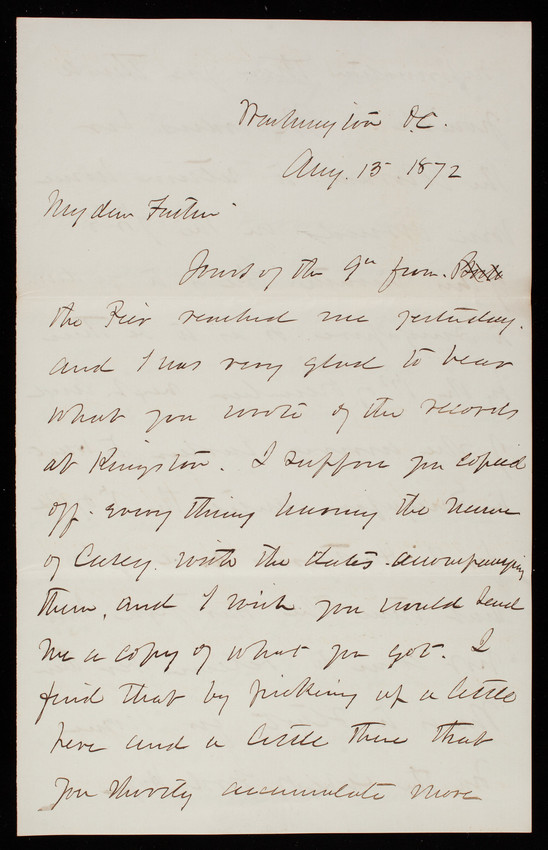 Washington D.C.
Aug. 15 1872
My dear Father
Yours of the 9th from
the Pier reached me yesterday.
and I was very glad to hear
what you wrote of the records
at Kingston. I suppose you copied
off every thing having the name
of Casey with the dates accompanying
them, and I wish you would send
me a copy of what you got. I
find that by picking up a little
here and a little there that
you shortly accumulate more